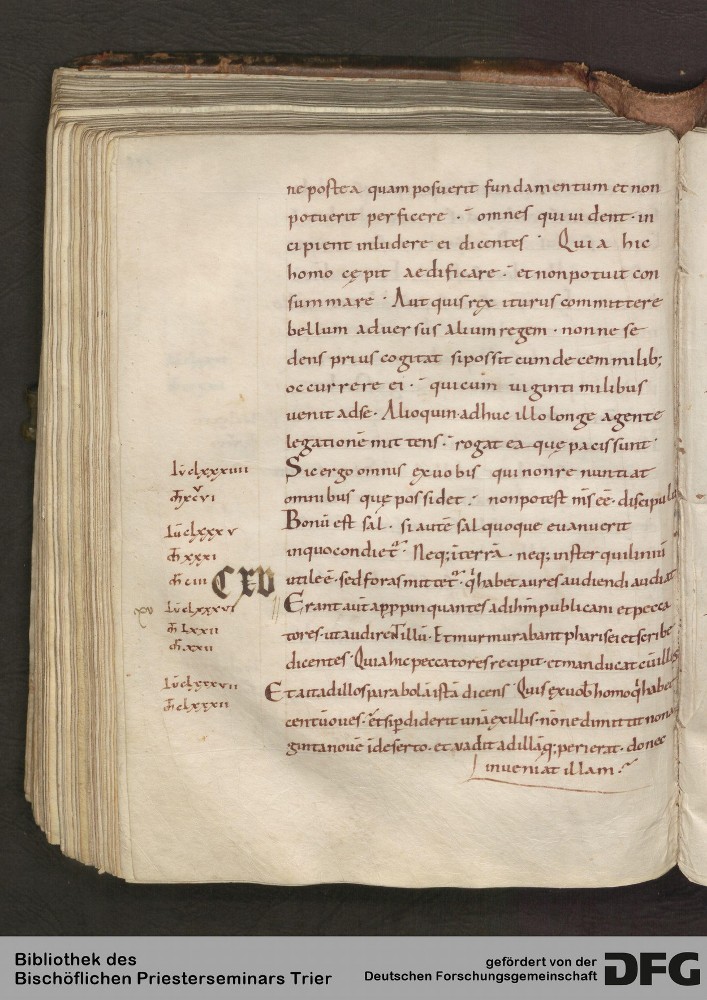 ne postea quam posuerit fundamentum et non
potuerit perficere · omnes qui uident · in
cipient inludere ei dicentes · Quia hic
homo cępit aedificare · et non potuit con
summare · Aut quis rex iturus committere
bellum aduersus alium regem · nonne se
dens prius cogitat si possit cum decem milib;
occurrere ei · qui cum uiginti milibus
uenit ad se · Alioquin adhuc illo longe agente
legationē mittens · rogat ea quę pacis sunt ·
Sic ergo omnis ex uobis qui non renuntiat
omnibus quę possidet · non potest m̄s eē · discipulu
Bonū est sal · si autē sal quoque euanuerit
in quo condiet᷑ · Neq; in terrā · neq; in sterquilinū
utile ē · sed foras mittet᷑ · q̇ habet aures audiendi audiat
Erant aut̄ appropinquantes ad ihm̄ publicani et pecca
tores · ut audirent illū · Et murmurabant pharisei et scribe
dicentes · Quia hic peccatores recipit · et manducat cū illis
Et ait ad illos parabolā istā dicens · Quis ex uob̄ homo q̇ habet
centū oues · et si pdiderit unā ex illis · nonne dimittit nona
ginta nouē ī deserto · et uadit ad illā q; perierat · donec
inueniat illam ·
CXV
xv
Bibliothek des
Bischöflichen Priesterseminars Trier
gefördert von der
Deutschen Forschungsgemeinschaft
DFG